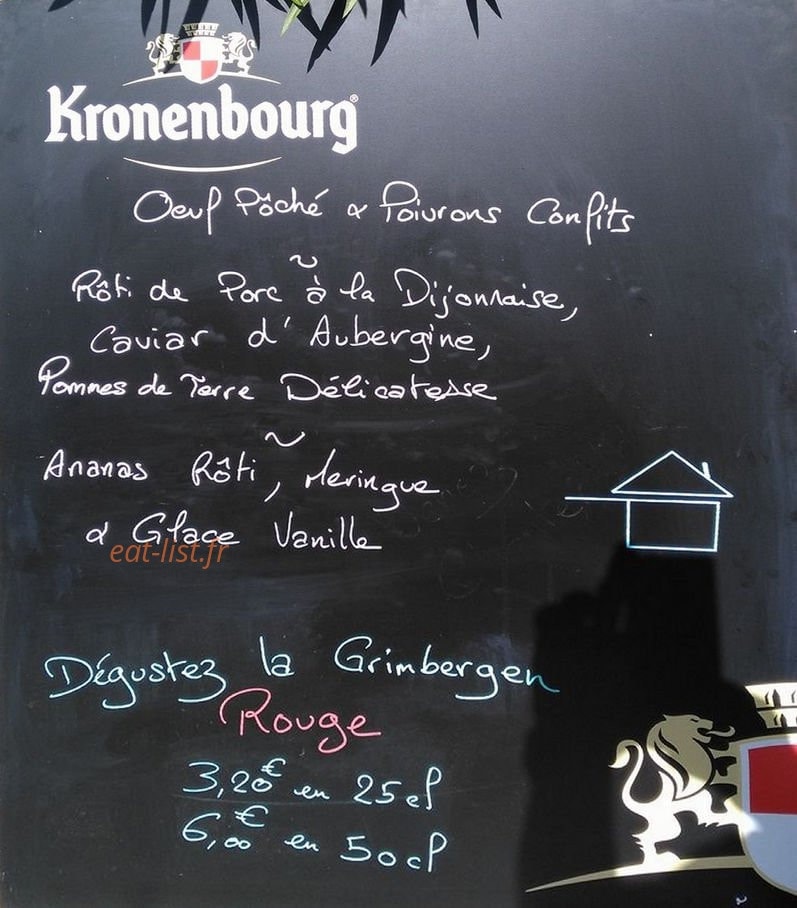 Kronenbourg®
Oeuf Pôché & Poivrons Confits
~
Rôti de Porc à la Dijonnaise,
Caviar d'Aubergine,
Pommes de Terre Délicatesse
~
Ananas Rôti, Meringue
& Glace Vanille
eat-list.fr
Dégustez la Grimbergen
Rouge
3,20€ en 25cl
6,00€ en 50cl